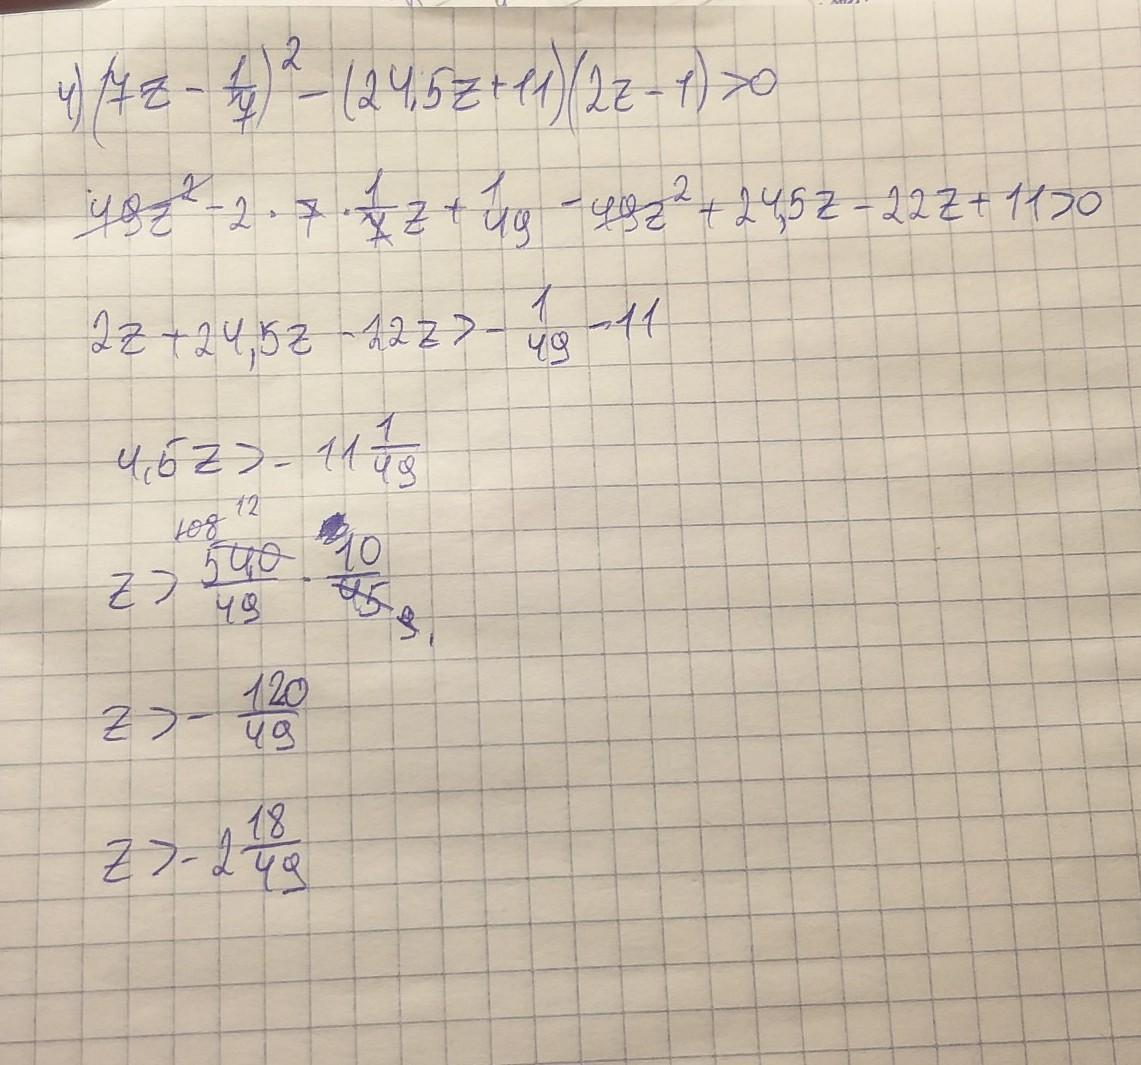 4) (7z - 1/7)² - (24,5z + 11)(2z - 1) > 0
49z² - 2 · 7 · 1/7 z + 1/49 - 49z² + 24,5z - 22z + 11 > 0
2z + 24,5z - 22z > - 1/49 - 11
4,5z > - 11 1/49
108 12
z > 540/49 · 10/45 9
z > - 120/49
z > - 2 18/49